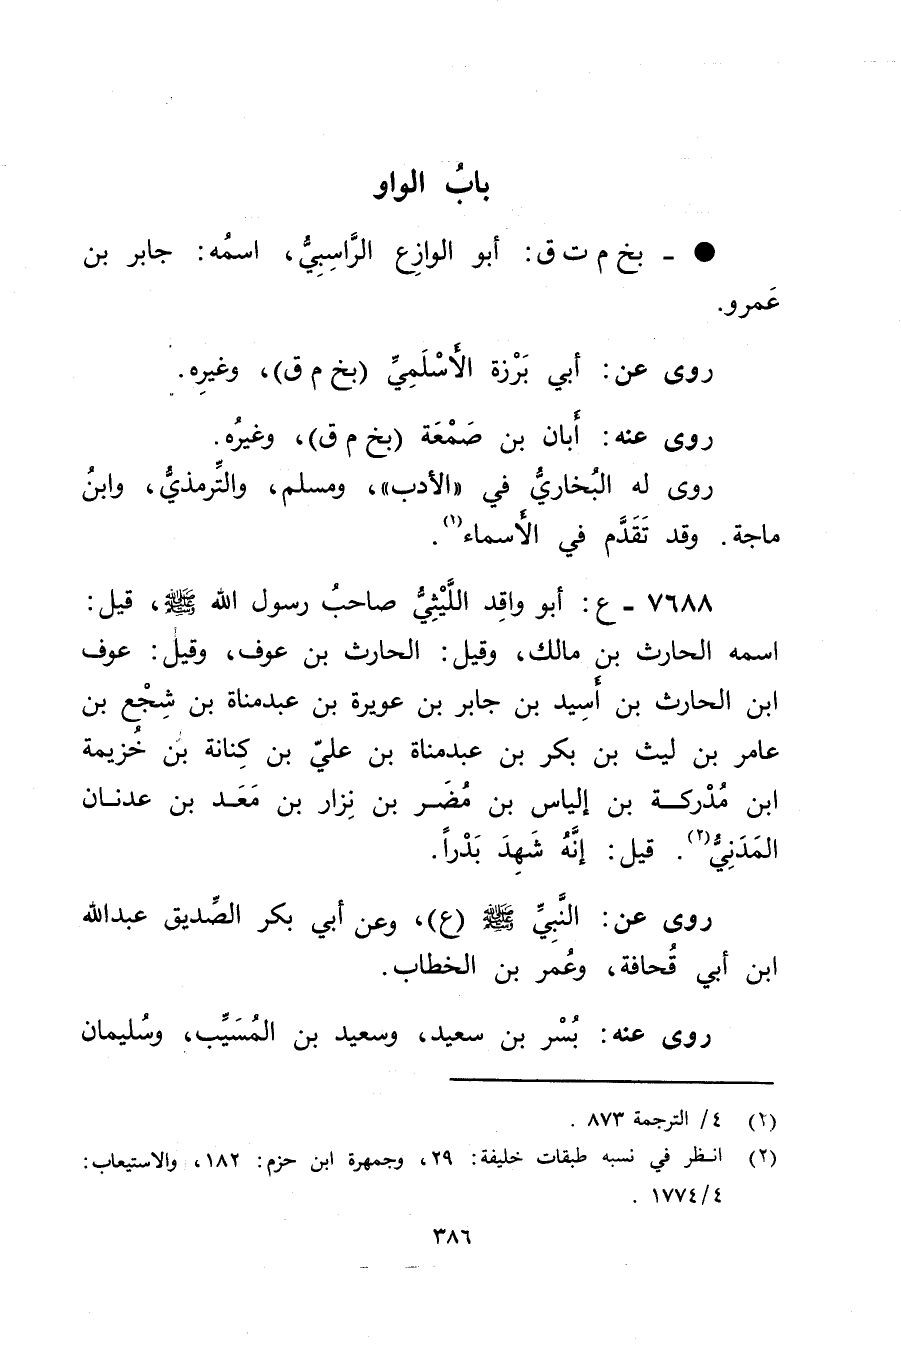 بابُ الواو
● ـ بخ م ت ق: أبو الوازِع الرَّاسِبِيُّ، اسمُه: جابر بن
عَمرو.
روى عن: أبي بَرْزة الأَسْلَمِيِّ (بخ م ق)، وغيرِه.
روى عنه: أَبان بن صَمْعَة (بخ م ق)، وغيرُه.
روى له البُخاريُّ في «الأدب»، ومسلم، والتِّرمذيُّ، وابنُ
ماجة. وقد تَقَدَّم في الأَسماء(١).
٧٦٨٨ ـ ع: أبو واقِد اللَّيْثِيُّ صاحبُ رسول الله ﷺ، قيل:
اسمه الحارث بن مالك، وقيل: الحارث بن عوف، وقيل: عوف
ابن الحارث بن أَسِيد بن جابر بن عويرة بن عبدمناة بن شِجْع بن
عامر بن ليث بن بكر بن عبدمناة بن عليّ بن كِنانة بن خُزيمة
ابن مُدْركــة بن إلياس بن مُضَــر بن نِزار بن مَعَــد بن عدنــان
المَدَنِيُّ(٢). قيل: إنَّهُ شَهِدَ بَدْراً.
روى عن: النَّبِيِّ ﷺ (ع)، وعن أبي بكر الصِّديق عبدالله
ابن أبي قُحافة، وعُمر بن الخطاب.
روى عنه: بُسْر بن سعيد، وسعيد بن المُسَيِّب، وسُليمان
(٢) ٤/ الترجمة ٨٧٣ .
(٢) انـظر في نسبه طبقات خليفة: ٢٩، وجمهرة ابن حزم: ١٨٢، والاستيعاب:
٤/ ١٧٧٤ .
٣٨٦